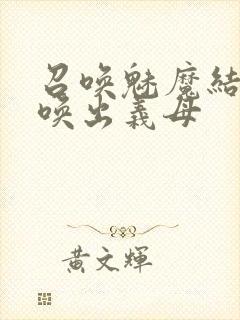 召唤魅魔結
唤出義母
黃文輝